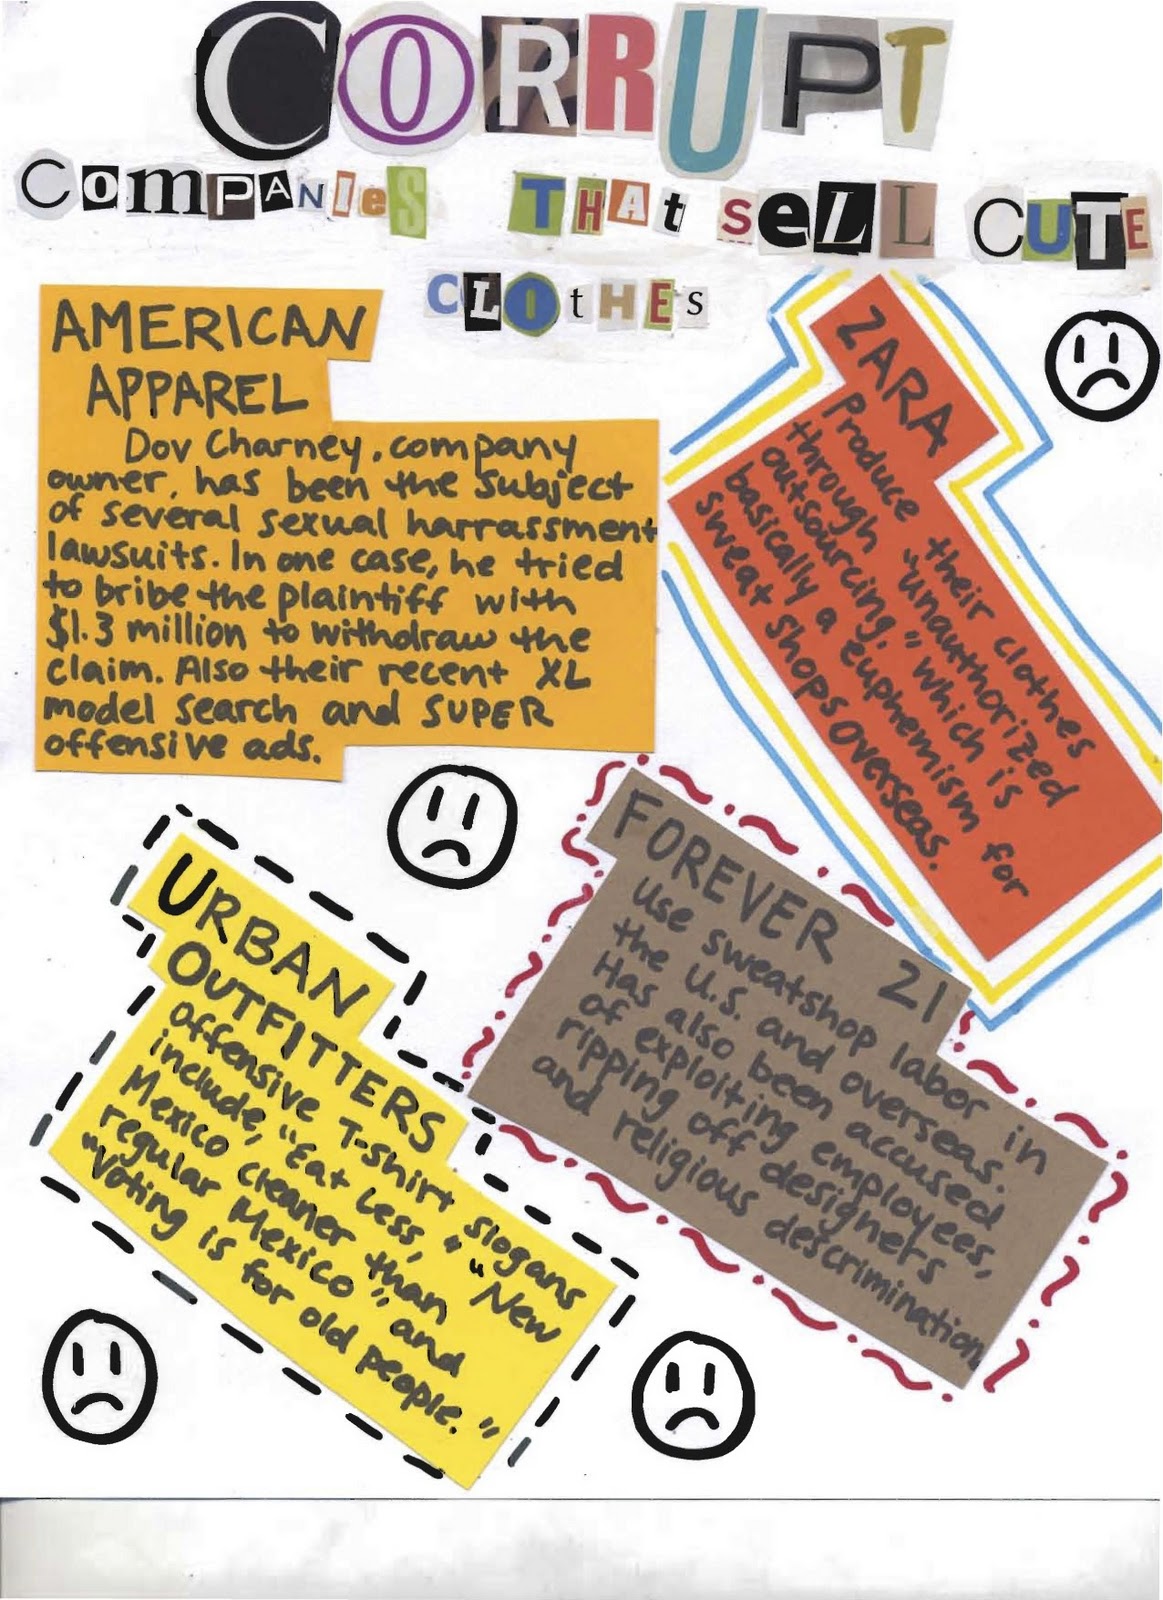 CORRUPT
COMPANIES THAt SELL CUTE
CLOtHEs
AMERICAN
APPAREL
Dov Charney, company
owner, has been the subject
of several sexual harrassment
lawsuits. In one case, he tried
to bribe the plaintiff with
$1.3 million to withdraw the
claim. Also their recent XL
model search and SUPER
offensive ads.
ZARA
Produce their clothes
through "unauthorized
outsourcing," which is
basically a euphemism for
sweat shops overseas.
FOREVER 21
Use sweatshop labor in
the U.S. and overseas.
Has also been accused
of exploiting employees,
ripping off designers
and religious descrimination
URBAN
OUTFITTERS
offensive T-shirt slogans
include, "Eat Less," "New
Mexico cleaner than
regular Mexico" and
"Voting is for old people."